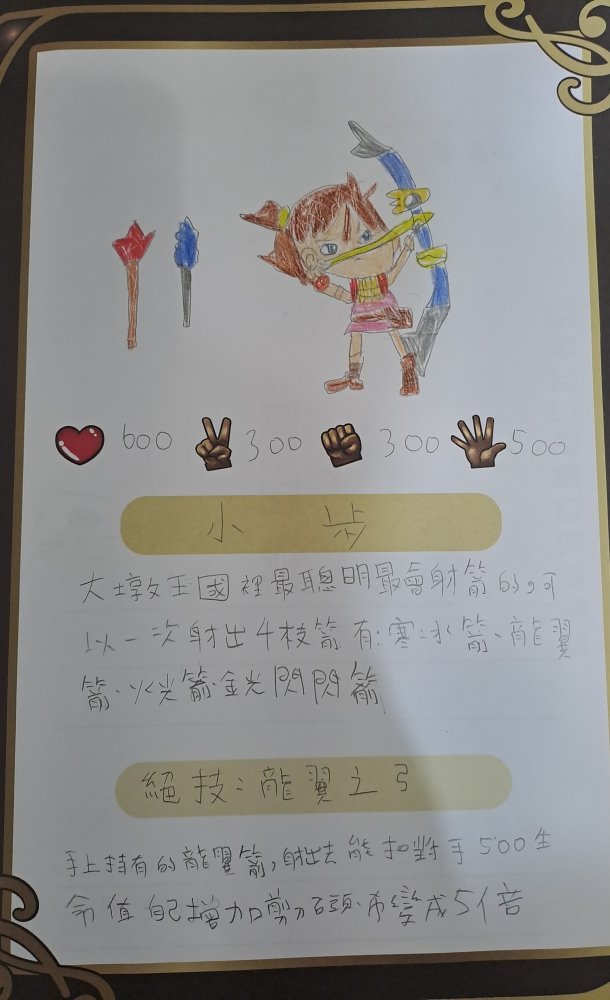 600 300 300 500
小步
大墩王國裡最聰明最會射箭的，可
以一次射出4枝箭有：寒冰箭、龍翼
箭、火光箭、金光閃閃箭
絕技：龍翼之弓
手上持有的龍翼箭，射出去能扣對手500生
命值自己增加剪刀石頭布變成5倍